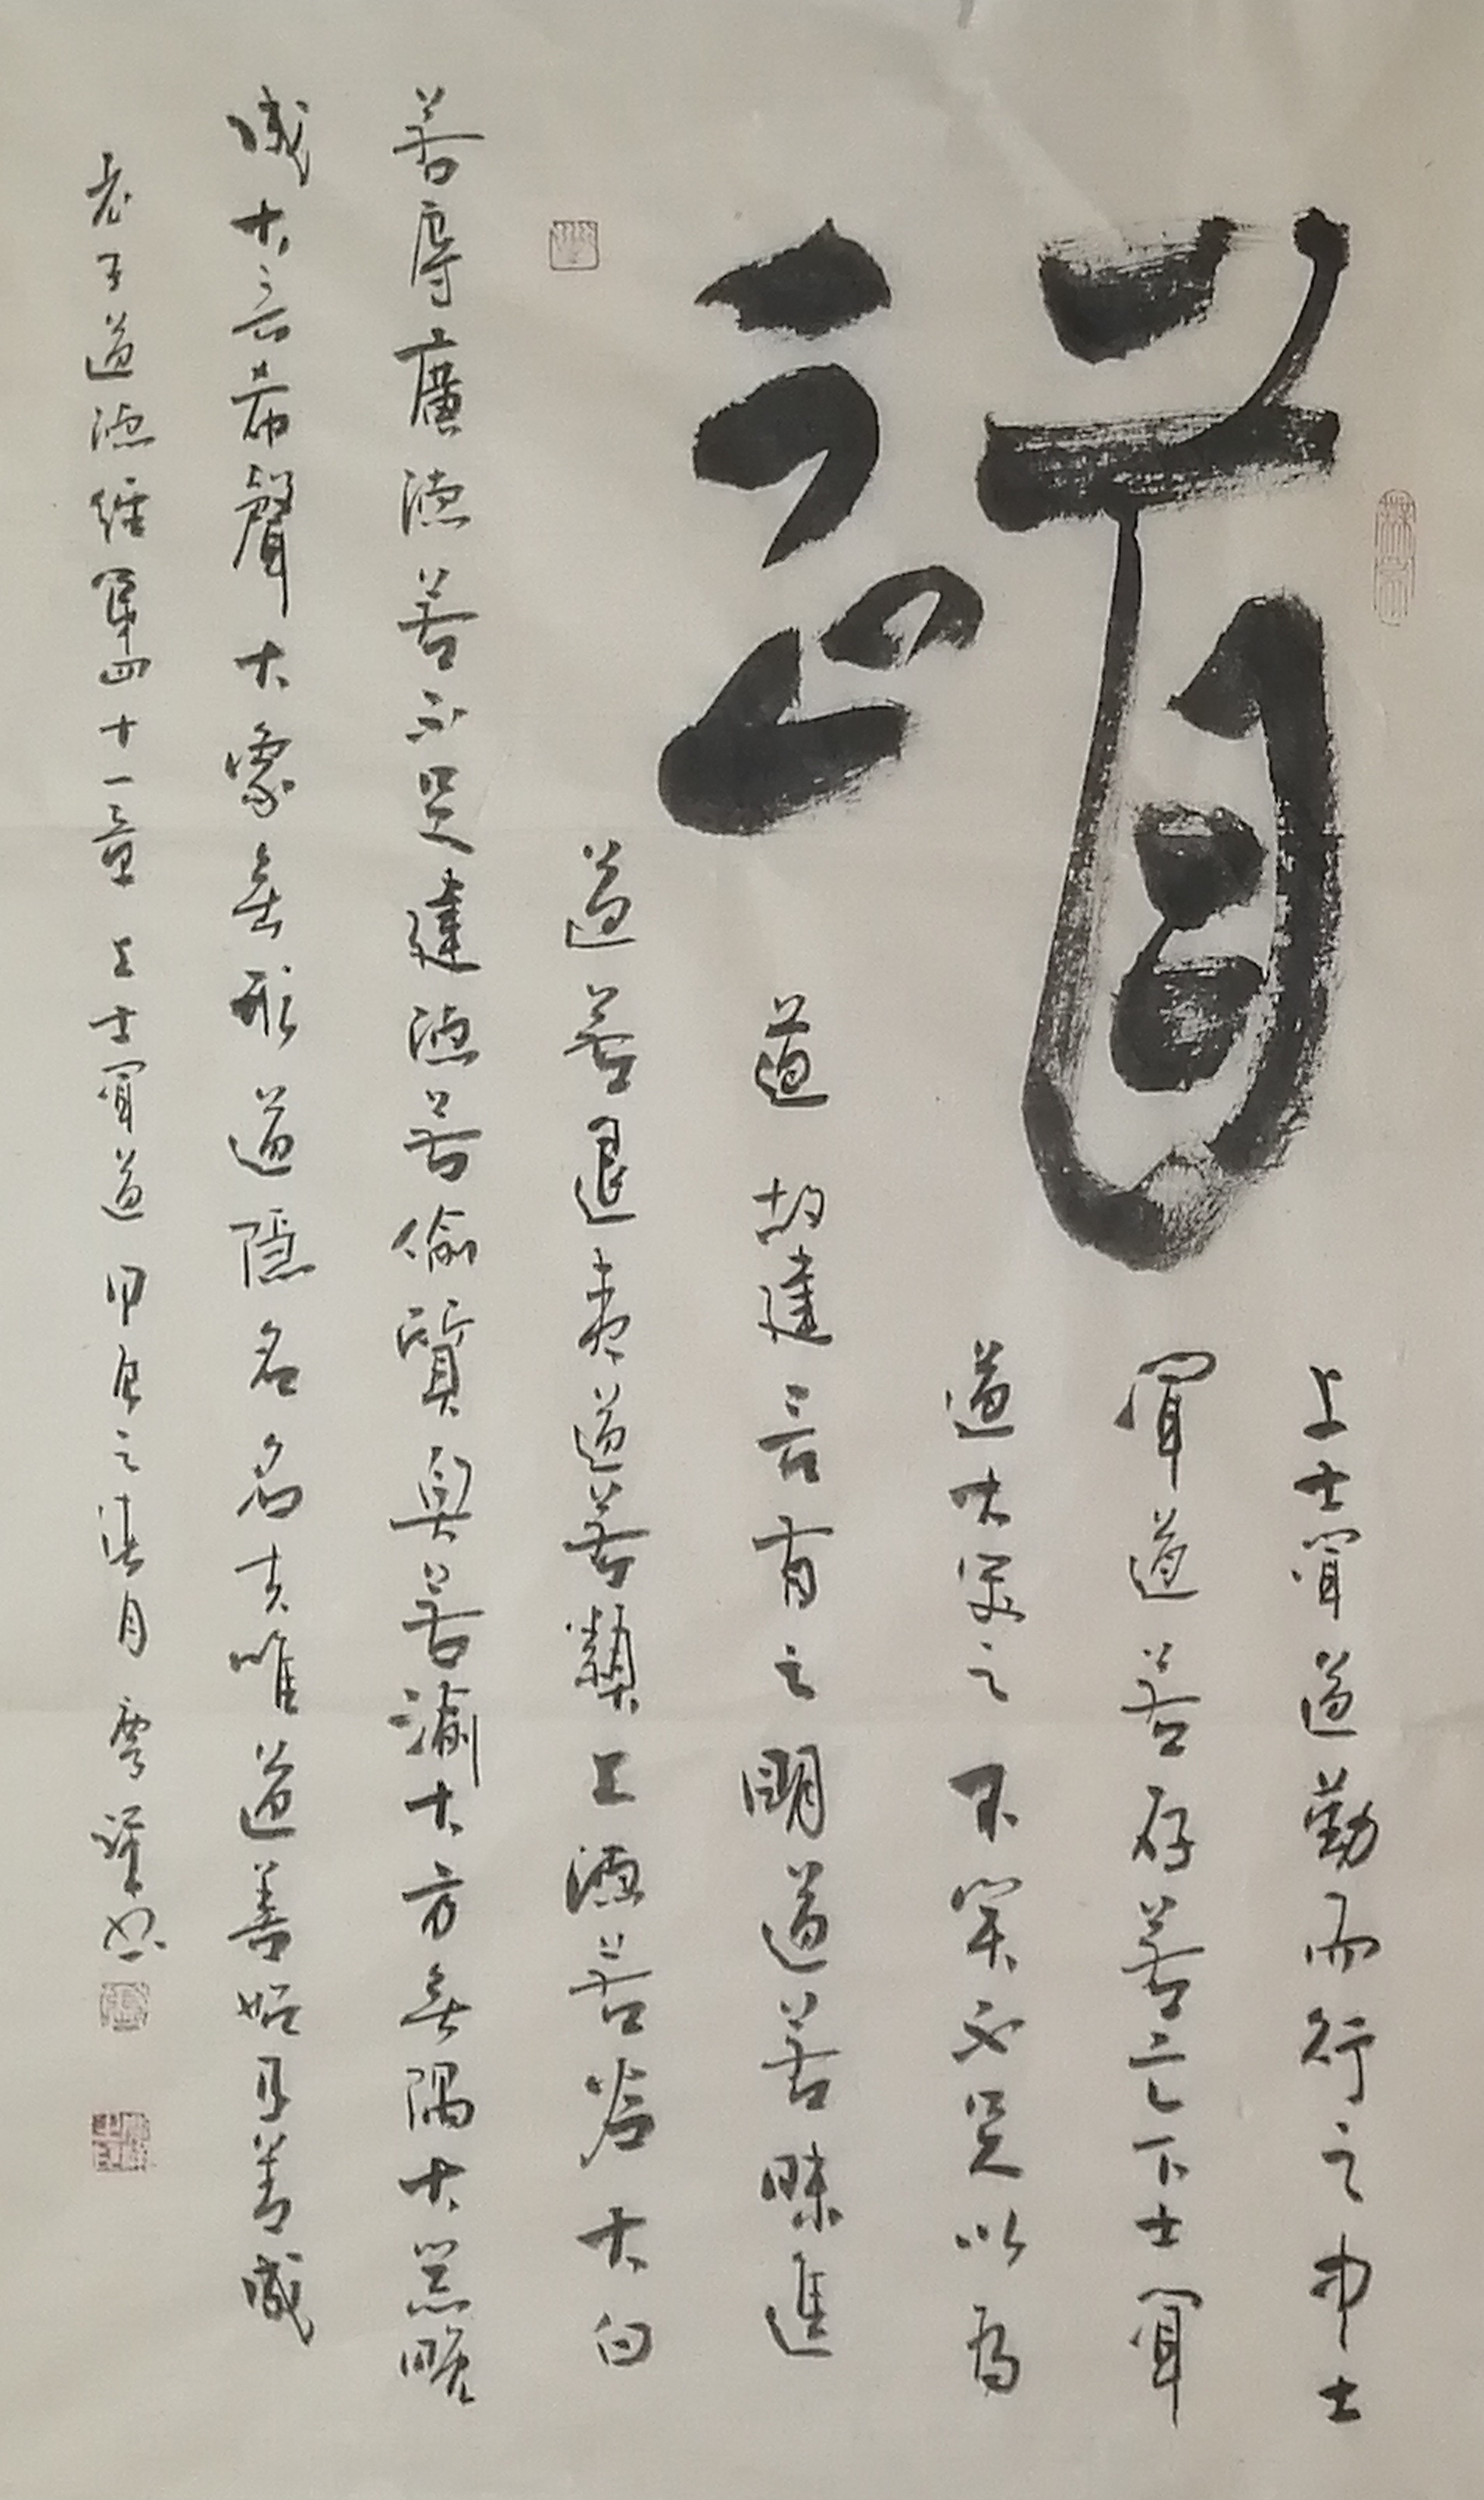 道
上士聞道勤而行之中士
聞道若存若亡下士聞
道大笑之不笑不足以為
道故建言有之明道若昧進
道若退夷道若纇上德若谷大白
若辱廣德若不足建德若偷質真若渝大方無隅大器晚
成大音希聲大象無形道隱名名夫唯道善始且善成
老子道德經第四十一章上士聞道 甲辰之月 書